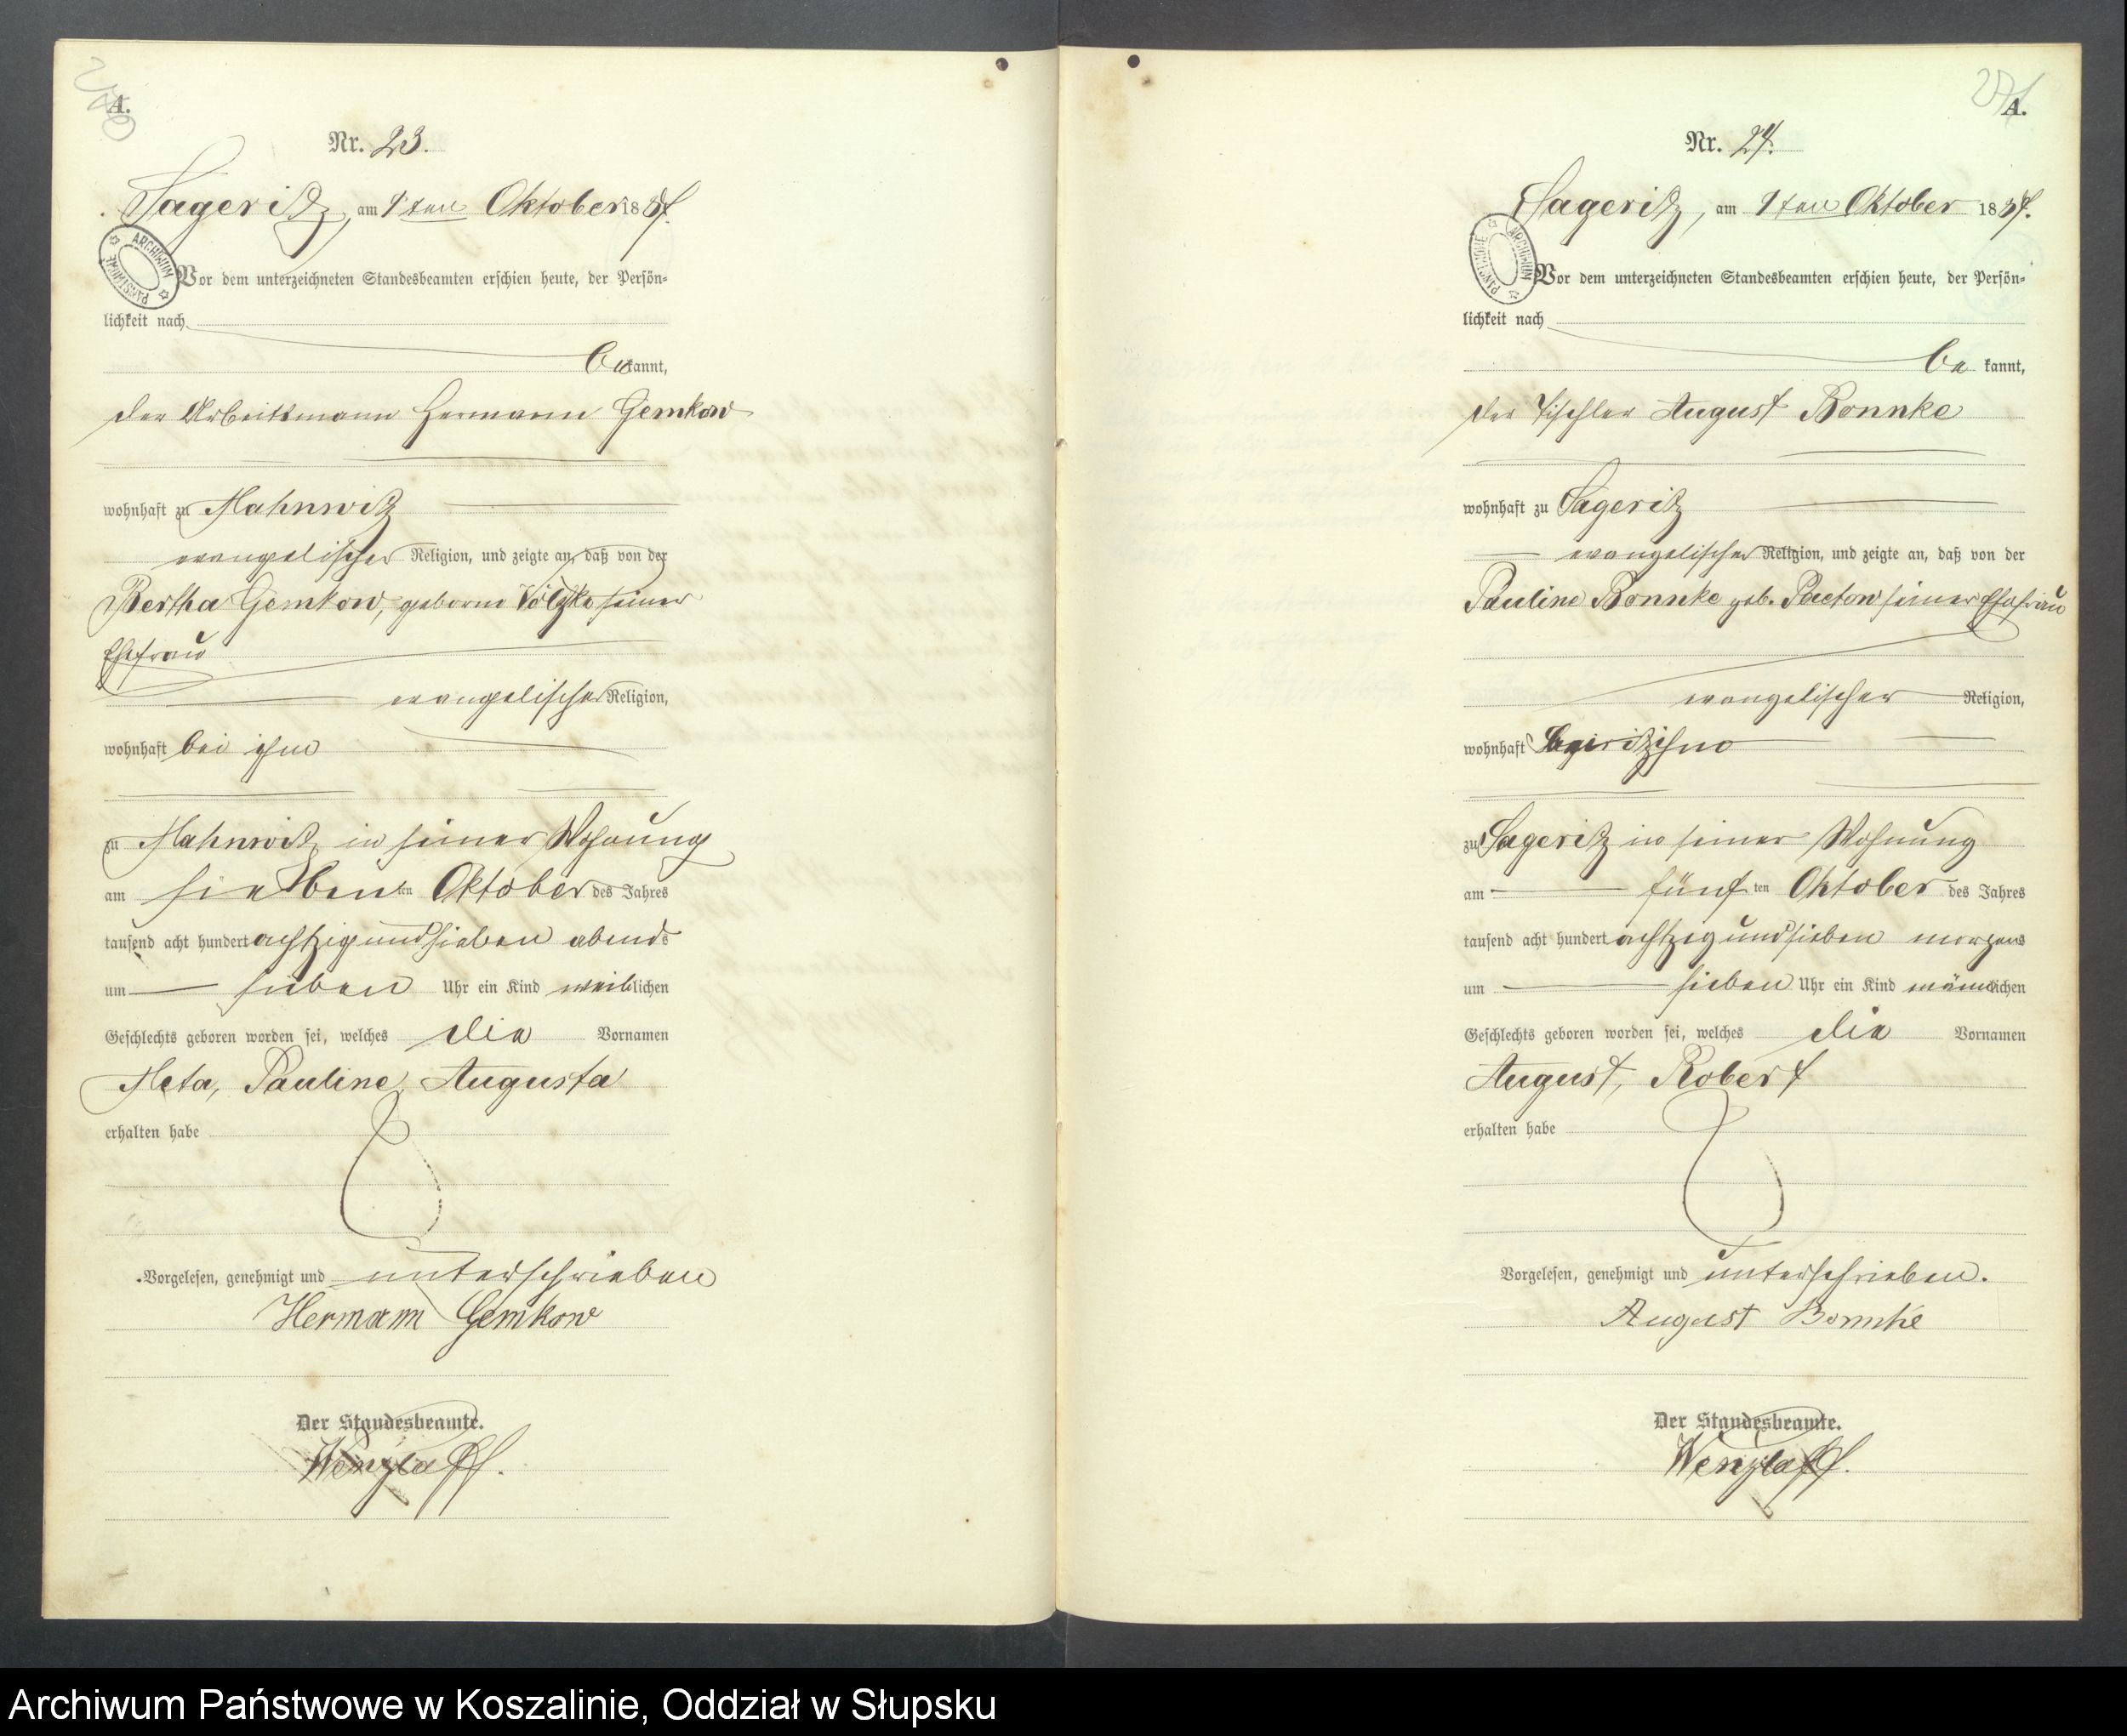 A.
Nr. 23.
Sageritz, am 9ten Oktober 1887.
ARCHIWUM PAŃSTWOWE
Vor dem unterzeichneten Standesbeamten erschien heute, der Persön-
lichkeit nach
bekannt,
der Arbeitsmann Hermann Gemkow
wohnhaft zu Mahnwitz
evangelischer Religion, und zeigte an, daß von der
Bertha Gemkow, geborne Völzke seiner
Ehefrau
evangelischer Religion,
wohnhaft bei ihm
zu Mahnwitz in seiner Wohnung
am sieben ten Oktober des Jahres
tausend acht hundert achtzig und sieben abends
um sieben Uhr ein Kind weiblichen
Geschlechts geboren worden sei, welches die Vornamen
Meta, Pauline, Augusta
erhalten habe
Vorgelesen, genehmigt und unterschrieben
Hermann Gemkow
Der Standesbeamte.
Wenzlaff.
271
A.
Nr. 24.
Sageritz, am 9ten Oktober 1887.
ARCHIWUM PAŃSTWOWE
Vor dem unterzeichneten Standesbeamten erschien heute, der Persön-
lichkeit nach
be kannt,
der Tischler August Bonnke
wohnhaft zu Sageritz
evangelischer Religion, und zeigte an, daß von der
Pauline Bonnke geb. Paetow seiner Ehefrau
evangelischer Religion,
wohnhaft
zu Sageritz in seiner Wohnung
am fünf ten Oktober des Jahres
tausend acht hundert achtzig und sieben morgens
um sieben Uhr ein Kind männlichen
Geschlechts geboren worden sei, welches die Vornamen
August, Robert
erhalten habe
Vorgelesen, genehmigt und unterschrieben.
August Bonnke
Der Standesbeamte.
Wenzlaff.
Archiwum Państwowe w Koszalinie, Oddział w Słupsku